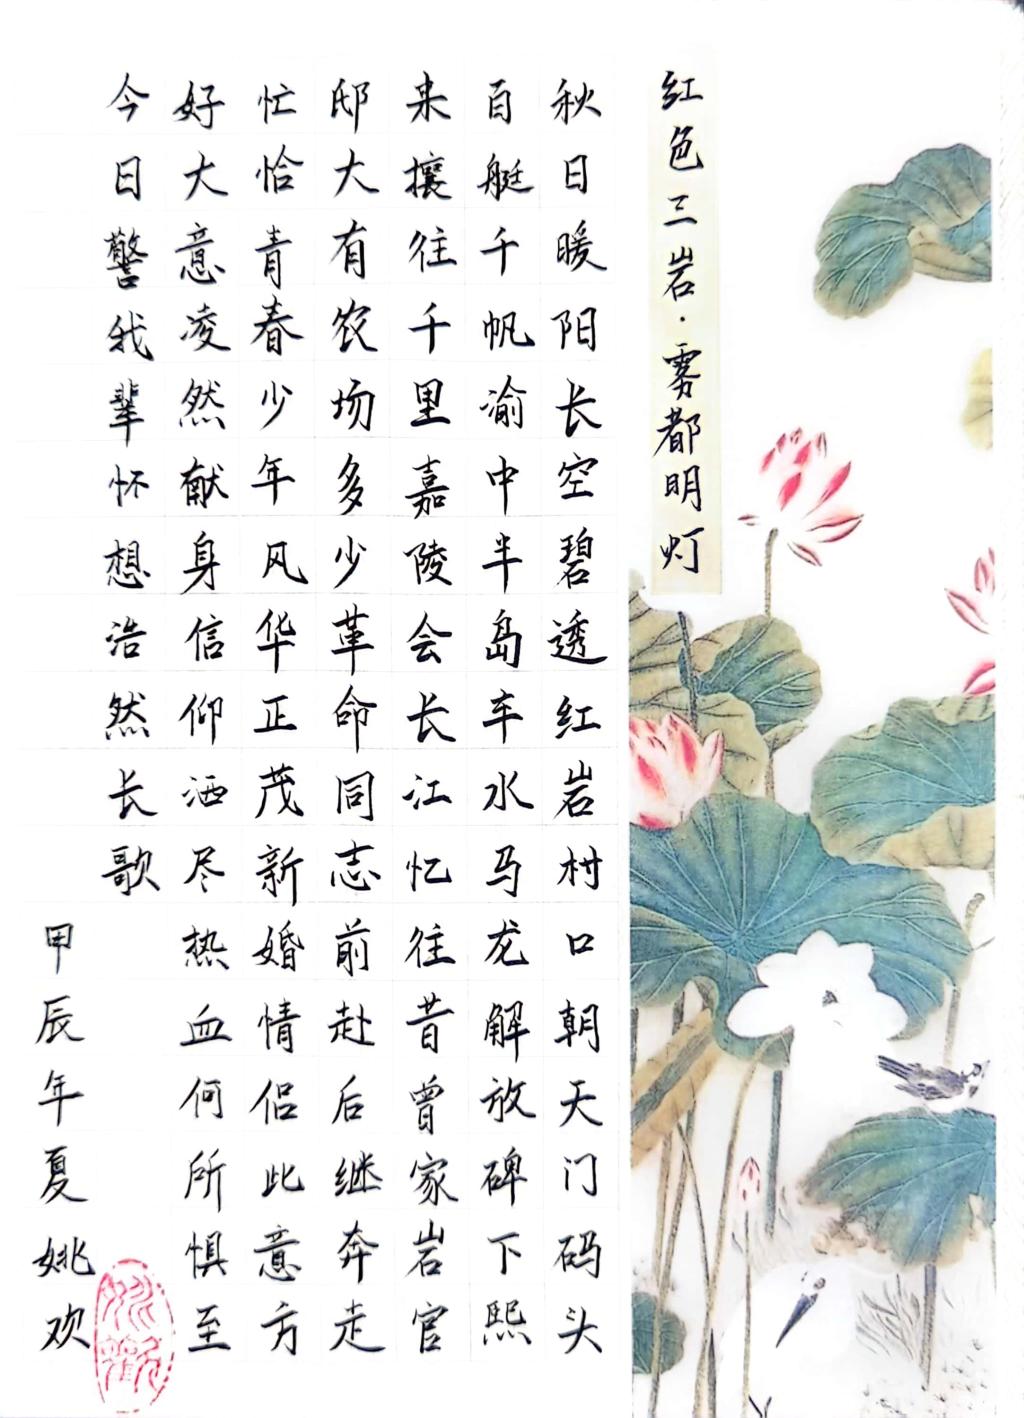 红色三岩·雾都明灯
秋日暖阳长空碧透红岩村口朝天门码头
百艇千帆渝中半岛车水马龙解放碑下熙
来攘往千里嘉陵会长江忆往昔曾家岩官
邸大有农场多少革命同志前赴后继奔走
忙恰青春少年风华正茂新婚情侣此意方
好大意凌然献身信仰洒尽热血何所惧至
今日警我辈怀想浩然长歌
甲辰年夏姚欢
姚欢